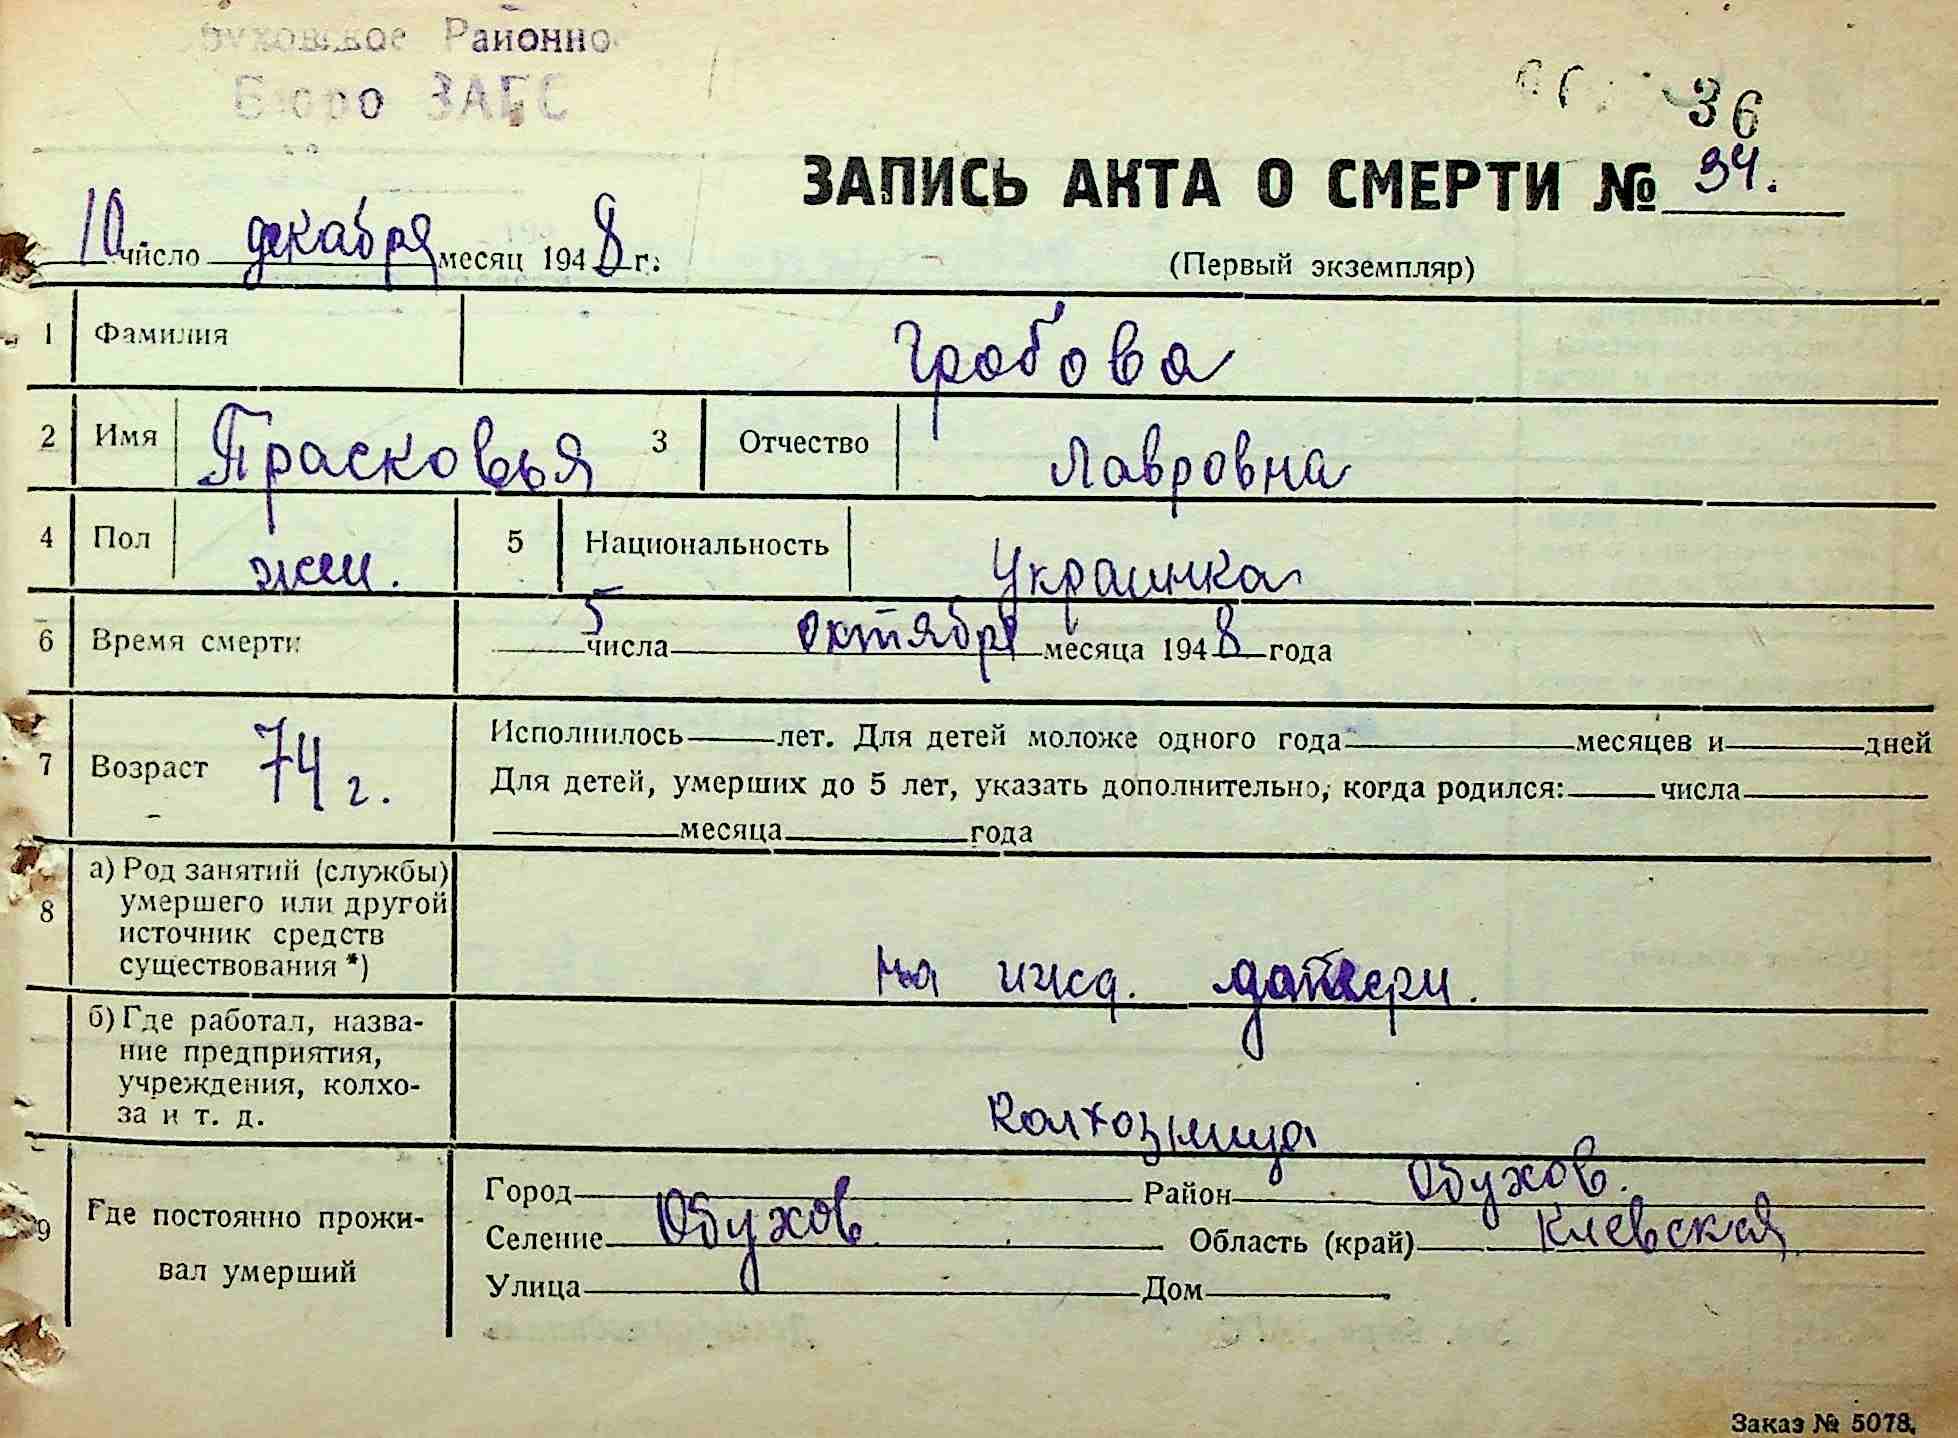 Районно
Бюро ЗАГС
36
ЗАПИСЬ АКТА О СМЕРТИ № 94.
10 число декабря месяц 1948 г.
(Первый экземпляр)
1 Фамилия Гробова
2 Имя Прасковья 3 Отчество Лавровна
4 Пол жен. 5 Национальность Украинка
6 Время смерти 5 числа октября месяца 1948 года
7 Возраст 74 г.
Исполнилось лет. Для детей моложе одного года месяцев и дней
Для детей, умерших до 5 лет, указать дополнительно, когда родился: числа
месяца года
8 а) Род занятий (службы)
умершего или другой
источник средств
существования *)
на ижд. дочери.
б) Где работал, назва-
ние предприятия,
учреждения, колхо-
за и т. д.
Колхозница
9 Где постоянно прожи-
вал умерший
Город Район Обухов.
Селение Обухов Область (край) Киевская
Улица Дом
Заказ № 5078.